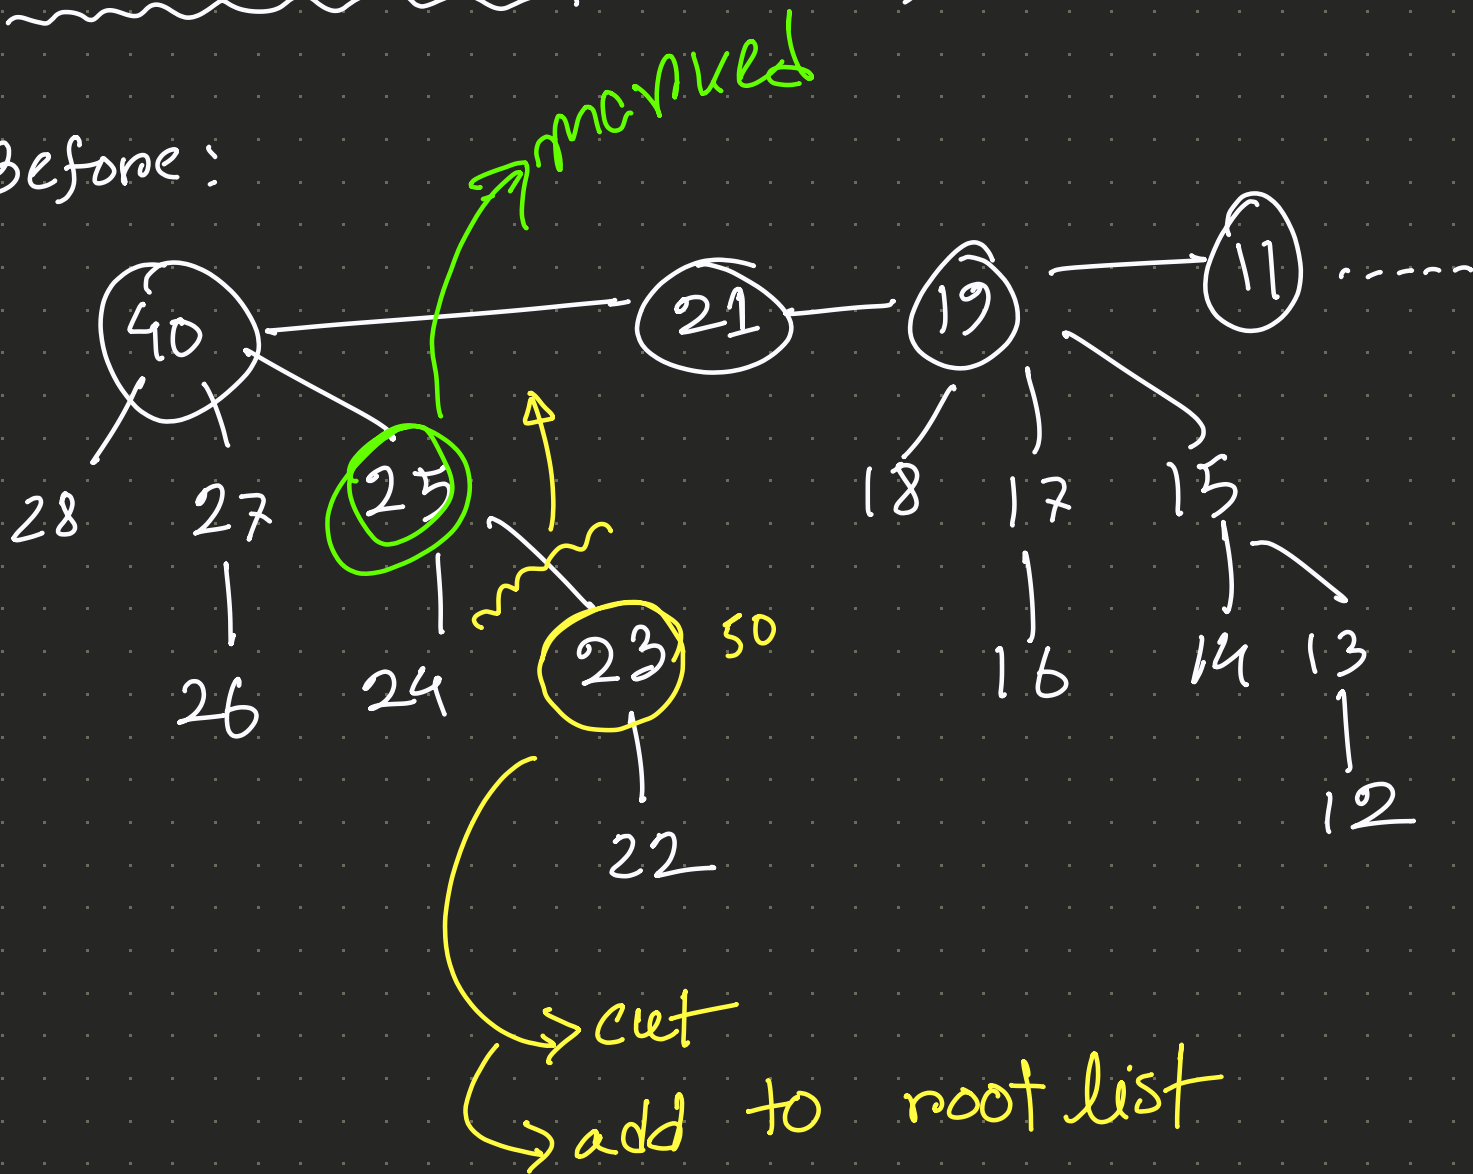 marked
Before:
40 21 19 11
28 27 25 18 17 15
26 24 23 50 16 14 13
22 12
cut
add to root list